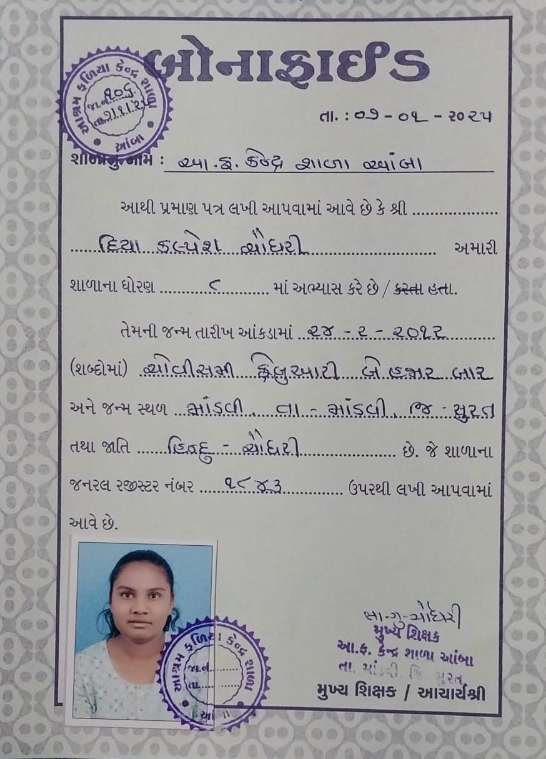 બોનાફાઈડ
આશ્રમ ફળિયા કેન્દ્ર શાળા
જા.નં. ૧૦૬
આંબા
તા. : ૦૭ - ૦૧ - ૨૦૨૫
નામ : આ.ફ. કેન્દ્ર શાળા આંબા
આથી પ્રમાણ પત્ર લખી આપવામાં આવે છે કે શ્રી ....................
દિયા કલ્પેશ ચૌધરી અમારી
શાળાના ધોરણ ....૮.... માં અભ્યાસ કરે છે / કરતા હતા.
તેમની જન્મ તારીખ આંકડામાં ૨૪ - ૨ - ૨૦૧૨
(શબ્દોમાં) ચોવીસમી ફેબ્રુઆરી બે હજાર બાર
અને જન્મ સ્થળ માંડવી, તા - માંડવી, જિ - સુરત
તથા જાતિ હિન્દુ - ચૌધરી છે. જે શાળાના
જનરલ રજીસ્ટર નંબર ૧૮૪૩ ઉપરથી લખી આપવામાં
આવે છે.
આશ્રમ ફળિયા કેન્દ્ર શાળા
જા.નં.
તા.
આંબા
મુખ્ય શિક્ષક
આ.ફ. કેન્દ્ર શાળા આંબા
તા. માંડવી જિ સુરત
મુખ્ય શિક્ષક / આચાર્યશ્રી